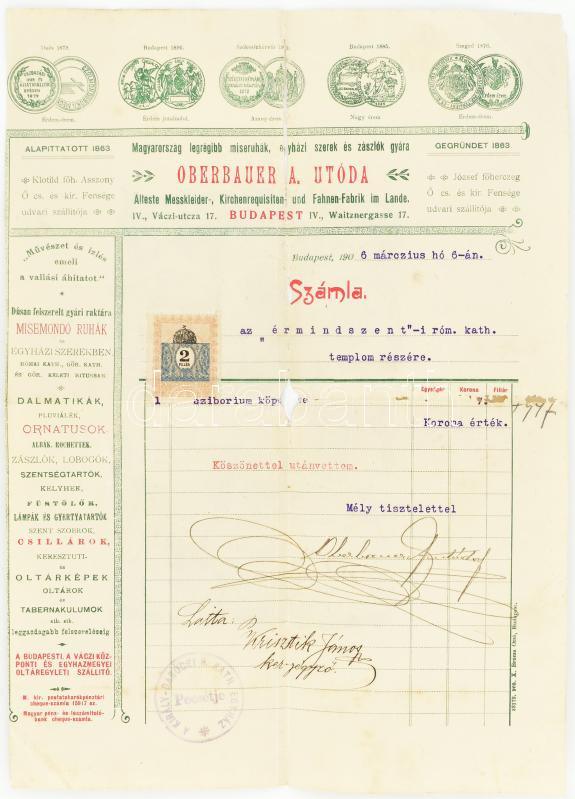 Budapest 1896.
Budapest 1885.
Szeged 1876.
Érdem-érem.
Arany-érem.
Nagy érem
Érdem-érem.
ALAPITTATOTT 1863
Magyarország legrégibb miseruhák, egyházi szerek és zászlók gyára
GEGRÜNDET 1863.
OBERBAUER A. UTÓDA
Klotild főh. Asszony
Ő cs. és kir. Fensége
udvari szállitója
József főherczeg
Ő cs. és kir. Fensége
udvari szállitója
Älteste Messkleider-, Kirchenrequisiten- und Fahnen-Fabrik im Lande.
IV., Váczi-utcza 17. BUDAPEST IV., Waitznergasse 17.
„Művészet és izlés
emeli
a vallási áhitatot."
Budapest, 190 6 márczius hó 6-án.
Számla.
az "érmindszent"-i róm. kath.
templom részére.
2
FILLÉR
Dúsan felszerelt gyári raktára
MISEMONDO RUHÁK
és
EGYHÁZI SZEREKBEN
RÓMAI KATH., GÖR. KATH.
ÉS GÖR. KELETI RITUSRAK.
DALMATIKÁK,
PLUVIÁLÉK,
ORNATUSOK
ALBÁK, ROCHETTEK,
ZÁSZLÓK, LOBOGÓK,
SZENTSÉGTARTÓK,
KELYHEK,
FÜSTÖLŐK,
LÁMPÁK ÉS GYERTYATARTÓK
SZENT SZOBROK,
CSILLÁROK,
KERESZTUTI-
ÉS
OLTÁRKÉPEK
OLTÁROK
ÉS
TABERNAKULUMOK
stb. stb.
leggazdagabb felszereléséig
Egységár Korona Fillér
1 Sziborium köpenyke 7
Korona érték.
Köszönettel utánvettem.
Mély tisztelettel
Látta:
Krisztik János
ker. jegyző.
Pecsétje
A BUDAPESTI, A VÁCZI KÖZ-
PONTI ÉS EGYHAZMEGYEI
OLTÁREGYLETI SZÁLLITÓ.
M. kir. postatakarékpénztári
cheque-számla 15817 sz.
Magyar pénz- és leszámitoló-
bank cheque-számla.
darabanth